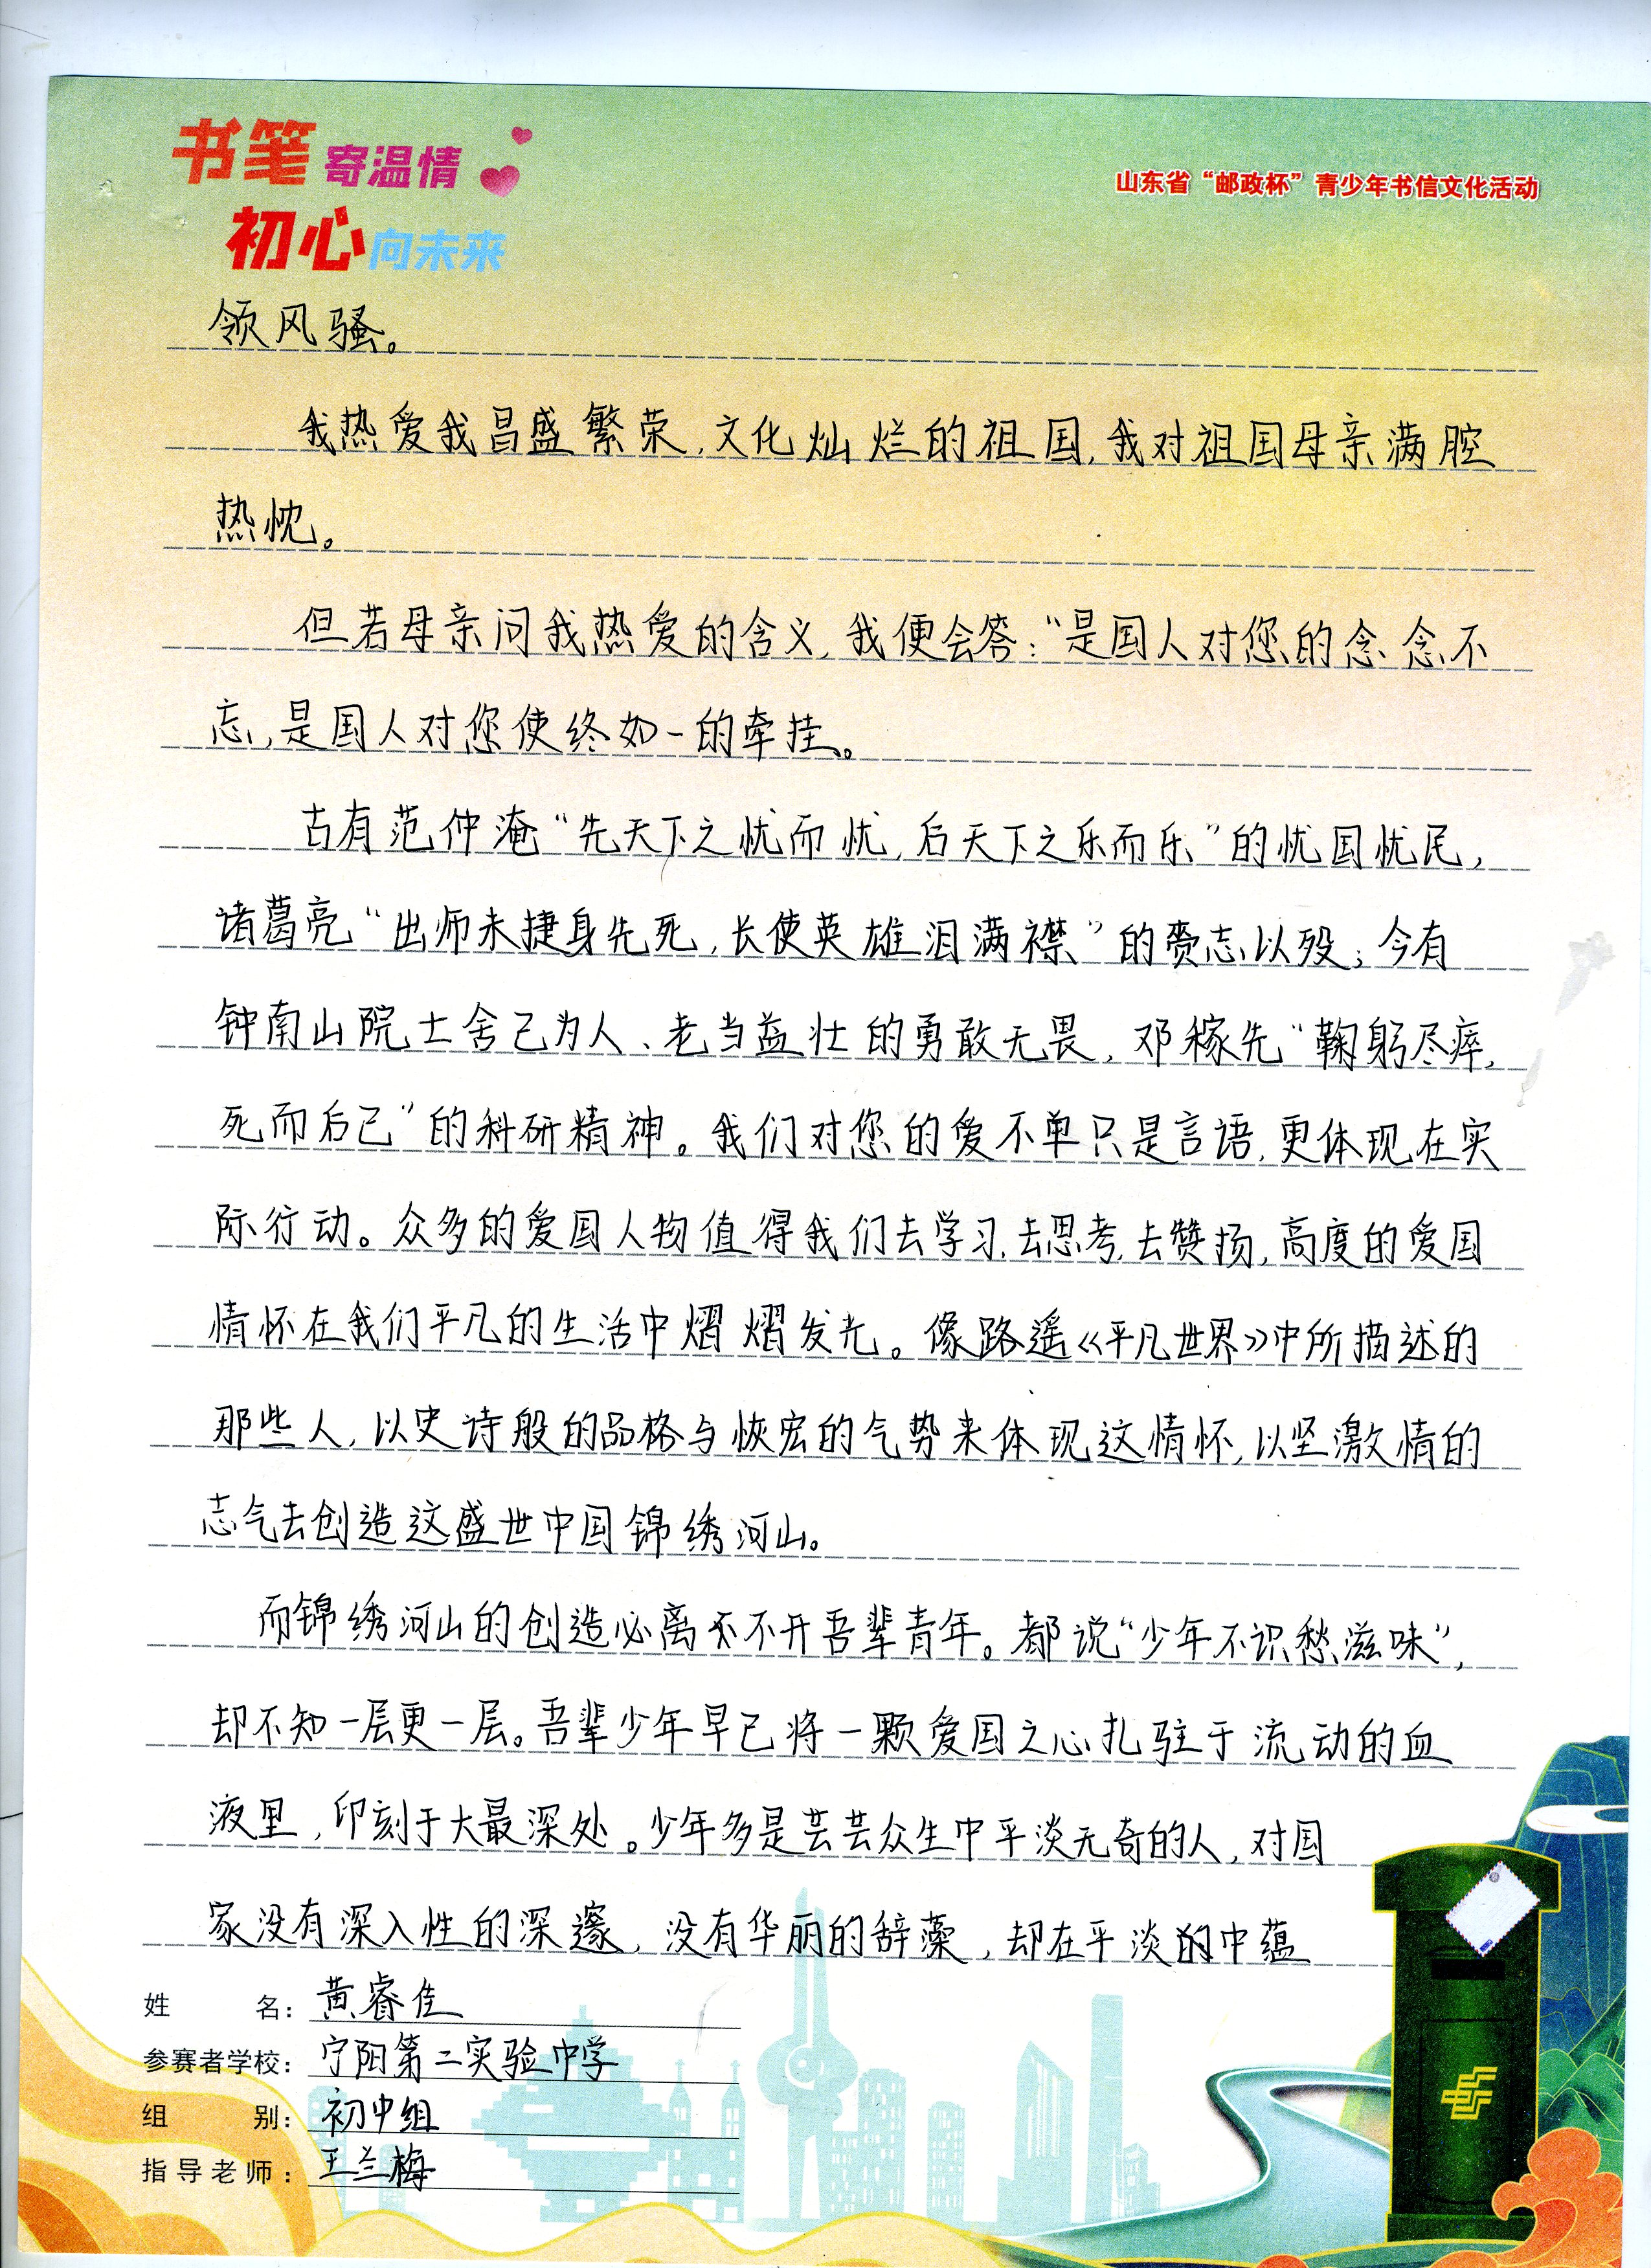 书笔寄温情
初心向未来
山东省“邮政杯”青少年书信文化活动
领风骚。
我热爱我昌盛繁荣,文化灿烂的祖国,我对祖国母亲满腔
热忱。
但若母亲问我热爱的含义,我便会答:“是国人对您的念念不
忘,是国人对您使终如一的牵挂。
古有范仲淹“先天下之忧而忧,后天下之乐而乐”的忧国忧民,
诸葛亮“出师未捷身先死,长使英雄泪满襟”的赍志以殁;今有
钟南山院士舍己为人、老当益壮的勇敢无畏,邓稼先“鞠躬尽瘁,
死而后已”的科研精神。我们对您的爱不单只是言语,更体现在实
际行动。众多的爱国人物值得我们去学习,去思考,去赞扬,高度的爱国
情怀在我们平凡的生活中熠熠发光。像路遥《平凡世界》中所描述的
那些人,以史诗般的品格与恢宏的气势来体现这情怀,以坚激情的
志气去创造这盛世中国锦绣河山。
而锦绣河山的创造必离不不开吾辈青年。都说“少年不识愁滋味”,
却不知一层更一层。吾辈少年早已将一颗爱国之心扎驻于流动的血
液里,印刻于大最深处。少年多是芸芸众生中平淡无奇的人,对国
家没有深入性的深邃,没有华丽的辞藻,却在平淡的中蕴
姓名:黄睿佳
参赛者学校:宁阳第二实验中学
组别:初中组
指导老师:王兰梅